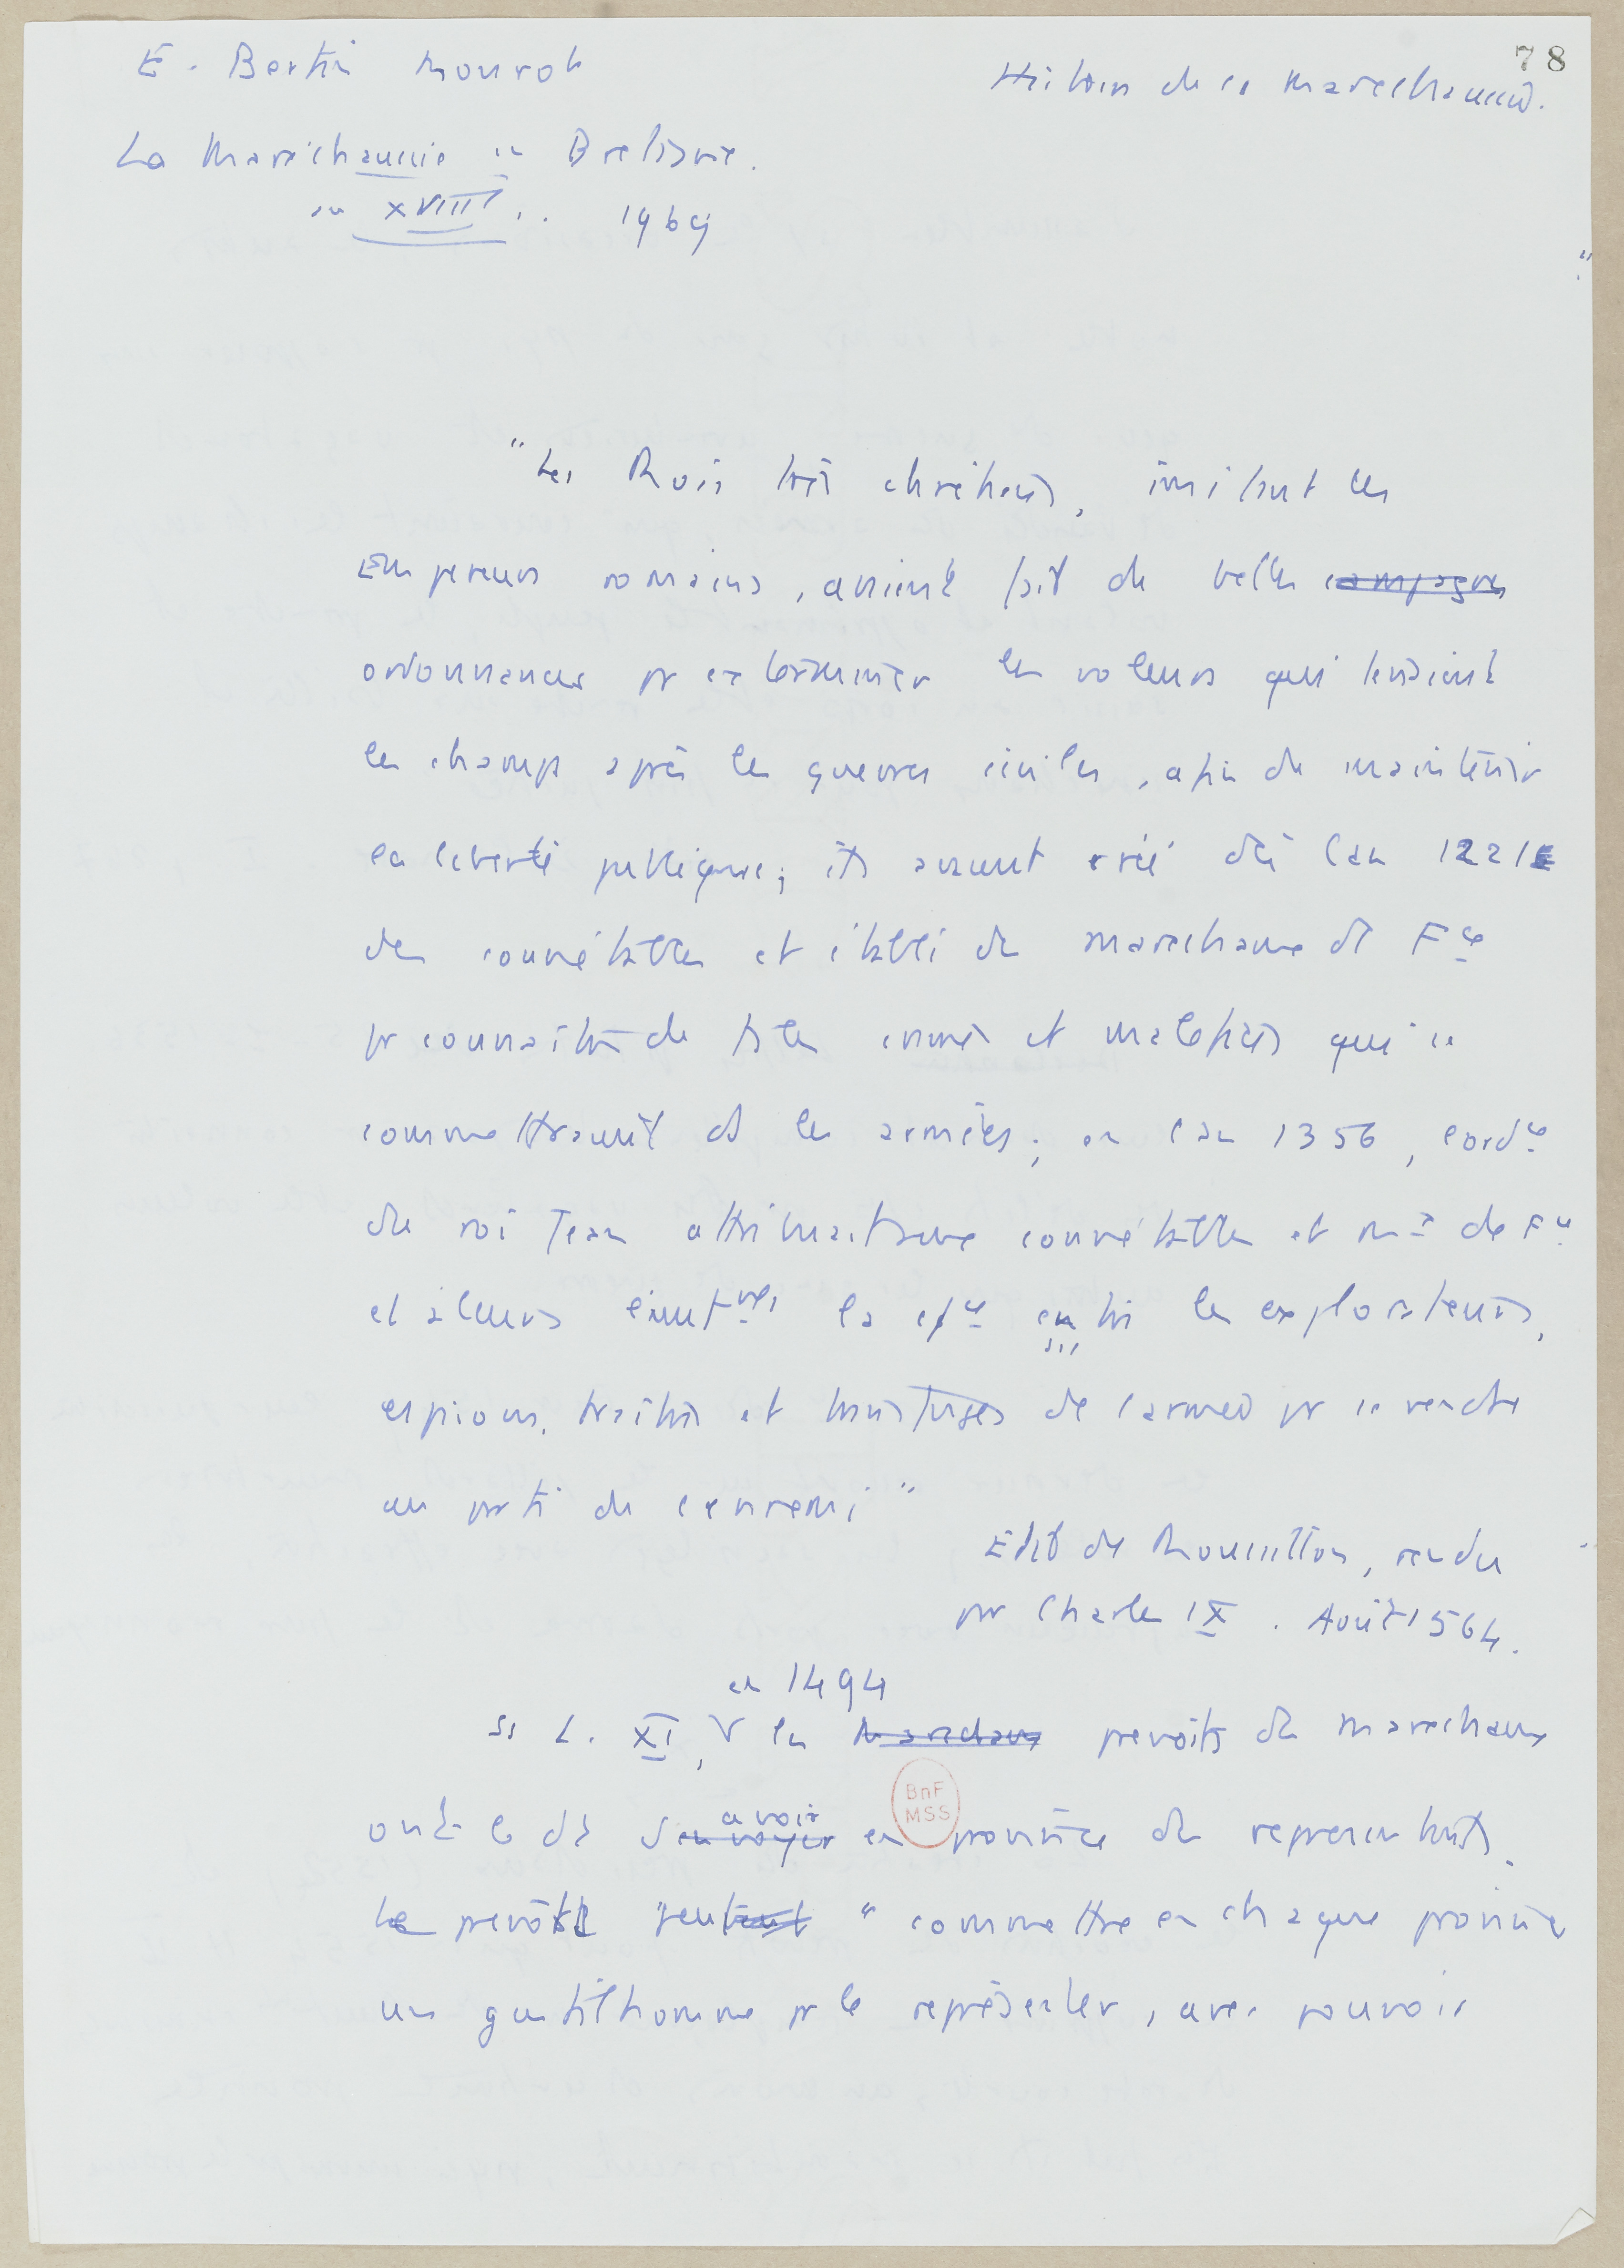 78
E. Bertin Mourot
Histoire de la Maréchaussée.
La Maréchaussée en Bretagne.
au XVIII. . 1969
"Les Rois très chrétiens, imitant les
Empereurs romains, avaient fait de belles campagnes
ordonnances pr exterminer les voleurs qui tenaient
les champs après les guerres civiles, afin de maintenir
la liberté publique; ils avaient créé dès l'an 1221
des connétables et établi des maréchaux de Fce
pr connaître de ts les crimes et maléfices qui se
commettraient ds les armées; en l'an 1356, l'ordce
du roi Jean attribuait aux connétables et maux de Fce
et à leurs lieutnts la
les explorateurs,
espions, traîtres et transfuges de l'armée pr se rendre
au parti de l'ennemi"
Edit de Roussillon, rendu
par Charles IX. Août 1564.
en 1494
ss L. XI, V les Marechaux prévôts des maréchaux
ont le dt d'envoyer avoir en province des représentants.
Le prévôt peut "commettre en chaque province
un gentilhomme pr le représenter, avec pouvoir
BnF
MSS